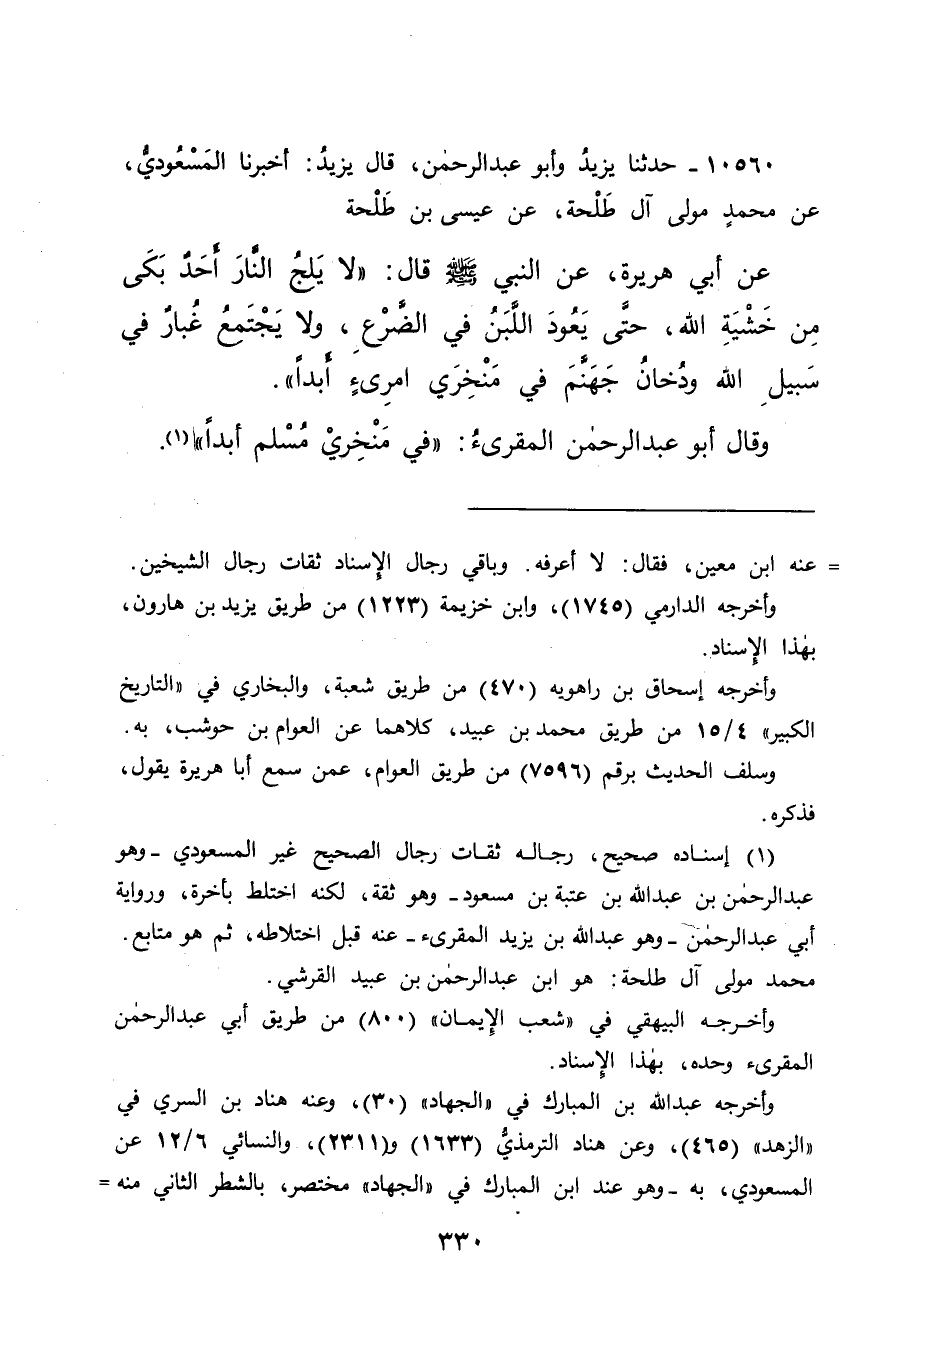 ١٠٥٦٠ ـ حدثنا يزيدُ وأبو عبدالرحمٰن، قال يزيدُ: أخبرنا المَسْعُوديُّ،
عن محمدٍ مولى آل طَلْحة، عن عيسى بن طَلْحة
عن أبي هريرة، عن النبي ﷺ قال: «لا يَلِجُ النَّارَ أَحَدٌ بَكَى
مِن خَشْيَةِ الله، حتَّى يَعُودَ اللَّبَنُ في الضَّرْعِ، ولا يَجْتَمِعُ غُبارٌ في
سَبيلِ الله ودُخانُ جَهَنَّمَ في مَنْخِرَي امرِىءٍ أَبداً».
وقال أبو عبدالرحمٰن المقرىءُ: «في مَنْخِرِيْ مُسْلم أبداً»(١).
= عنه ابن معين، فقال: لا أعرفه. وباقي رجال الإسناد ثقات رجال الشيخين.
وأخرجه الدارمي (١٧٤٥)، وابن خزيمة (١٢٢٣) من طريق يزيد بن هارون،
بهٰذا الإسناد.
وأخرجه إسحاق بن راهويه (٤٧٠) من طريق شعبة، والبخاري في «التاريخ
الكبير» ١٥/٤ من طريق محمد بن عبيد، كلاهما عن العوام بن حوشب، به.
وسلف الحديث برقم (٧٥٩٦) من طريق العوام، عمن سمع أبا هريرة يقول،
فذكره.
(١) إسناده صحيح، رجاله ثقات رجال الصحيح غير المسعودي ـ وهو
عبدالرحمٰن بن عبدالله بن عتبة بن مسعود ـ وهو ثقة، لكنه اختلط بأخرة، ورواية
أبي عبدالرحمٰن ـ وهو عبدالله بن يزيد المقرىء ـ عنه قبل اختلاطه، ثم هو متابع.
محمد مولى آل طلحة: هو ابن عبدالرحمٰن بن عبيد القرشي.
وأخرجه البيهقي في «شعب الإيمان» (٨٠٠) من طريق أبي عبدالرحمٰن
المقرىء وحده، بهٰذا الإسناد.
وأخرجه عبدالله بن المبارك في «الجهاد» (٣٠)، وعنه هناد بن السري في
«الزهد» (٤٦٥)، وعن هناد الترمذيُّ (١٦٣٣) و(٢٣١١)، والنسائي ١٢/٦ عن
المسعودي، به ـ وهو عند ابن المبارك في «الجهاد» مختصر، بالشطر الثاني منه =
٣٣٠